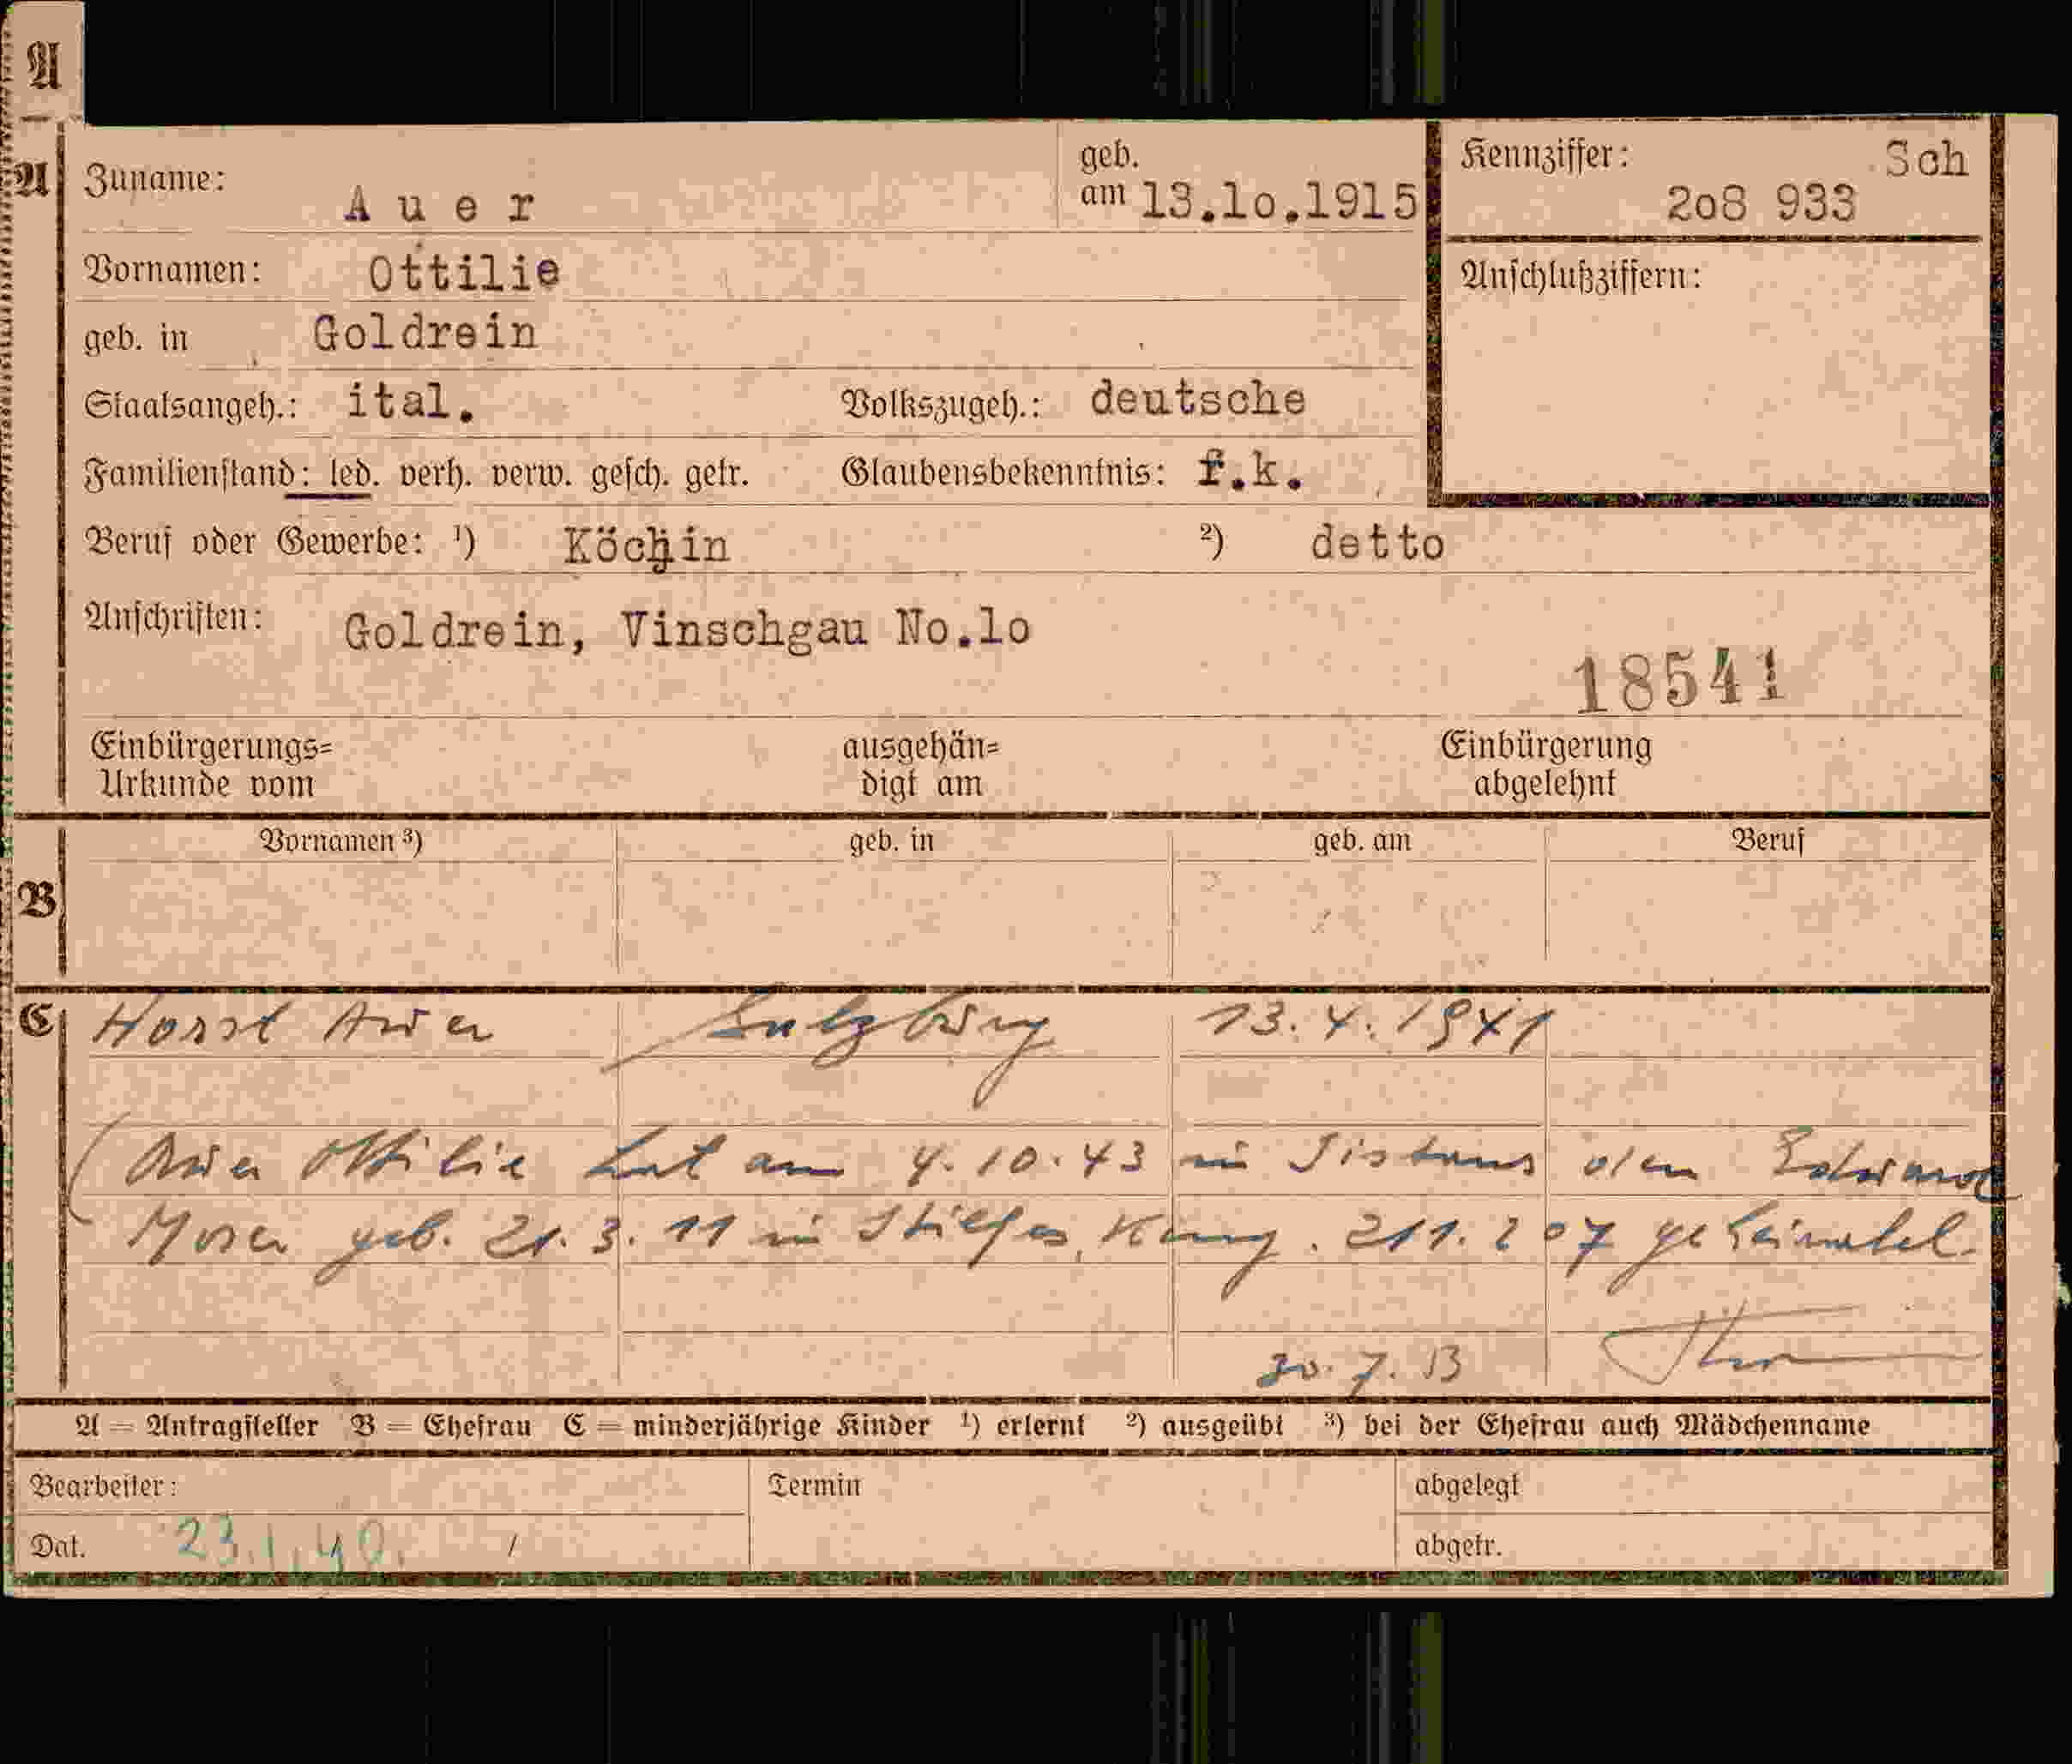 A
A Zuname: Auer geb. am 13.1o.1915 Kennziffer: Sch 2o8 933
Vornamen: Ottilie
Anschlußziffern:
geb. in Goldrein
Staatsangeh.: ital. Volkszugeh.: deutsche
Familienstand: led. verh. verw. gesch. getr. Glaubensbekenntnis: r.k.
Beruf oder Gewerbe: ¹) Köchin ²) detto
Anschriften: Goldrein, Vinschgau No.1o
18541
Einbürgerungs= ausgehän= Einbürgerung
Urkunde vom digt am abgelehnt
Vornamen ³) geb. in geb. am Beruf
B
C Horst Auer Salzburg 13.4.1941
(Auer Ottilie hat am 4.10.43 in Sistrans den Eduard
Moser geb. 21.3.11 in Stilfes, Kenng. 211.207 geheiratet.
30.7.
A = Antragsteller B = Ehefrau C = minderjährige Kinder ¹) erlernt ²) ausgeübt ³) bei der Ehefrau auch Mädchenname
Bearbeiter: Termin abgelegt
Dat. 23.1.40. / abgetr.